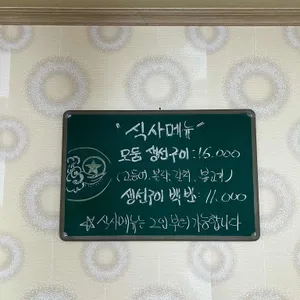 "식사메뉴"
모둠 생선구이 : 15.000
(고등어, 볼락, 갈치, 불고기)
생선구이 백반 : 11.000
☆ 식사메뉴는 2인 부터 가능합니다